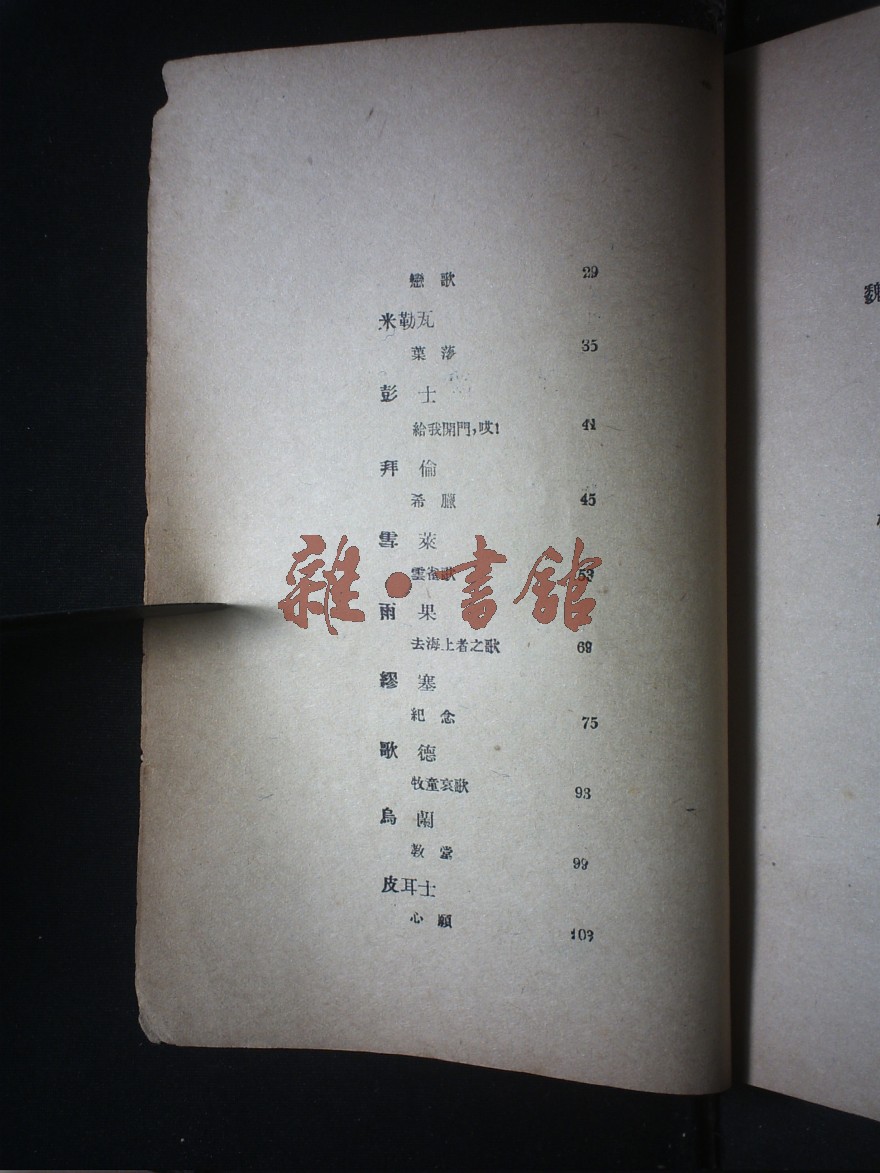 戀歌 29
米勒瓦
葉莎 35
彭士
給我開門，哎！ 41
拜倫
希臘 45
雪萊
雲雀歌 53
雨果
去海上者之歌 69
繆塞
紀念 75
歌德
牧童哀歌 93
烏蘭
教堂 99
皮耳士
心願 103
雜·書館
魏